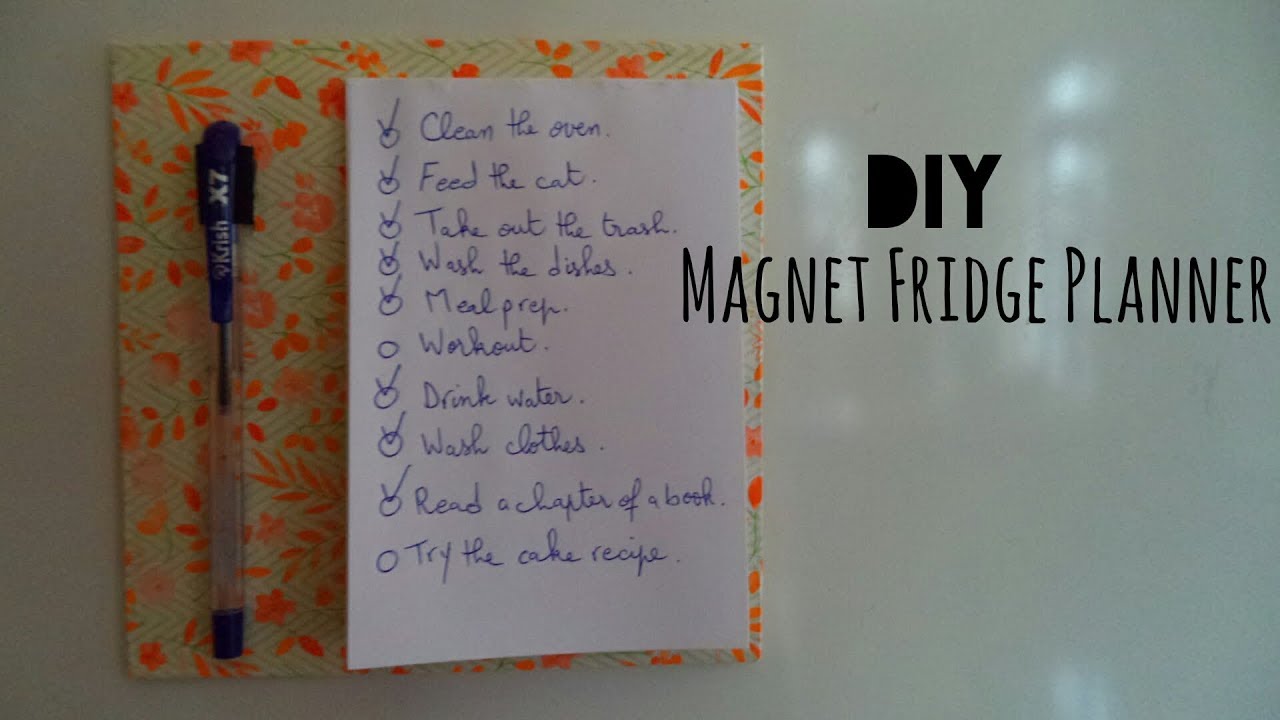 Clean the oven.
Feed the cat.
Take out the trash.
Wash the dishes.
Meal prep.
Workout.
Drink water.
Wash clothes.
Read a chapter of a book.
Try the cake recipe.
Krish X7
DIY
MAGNET FRIDGE PLANNER